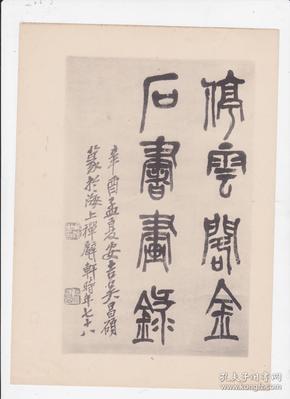 停雲閣金
石書畫錄
辛酉孟夏安吉吳昌碩
篆於海上禪甓軒時年七十八
孔夫子旧书网